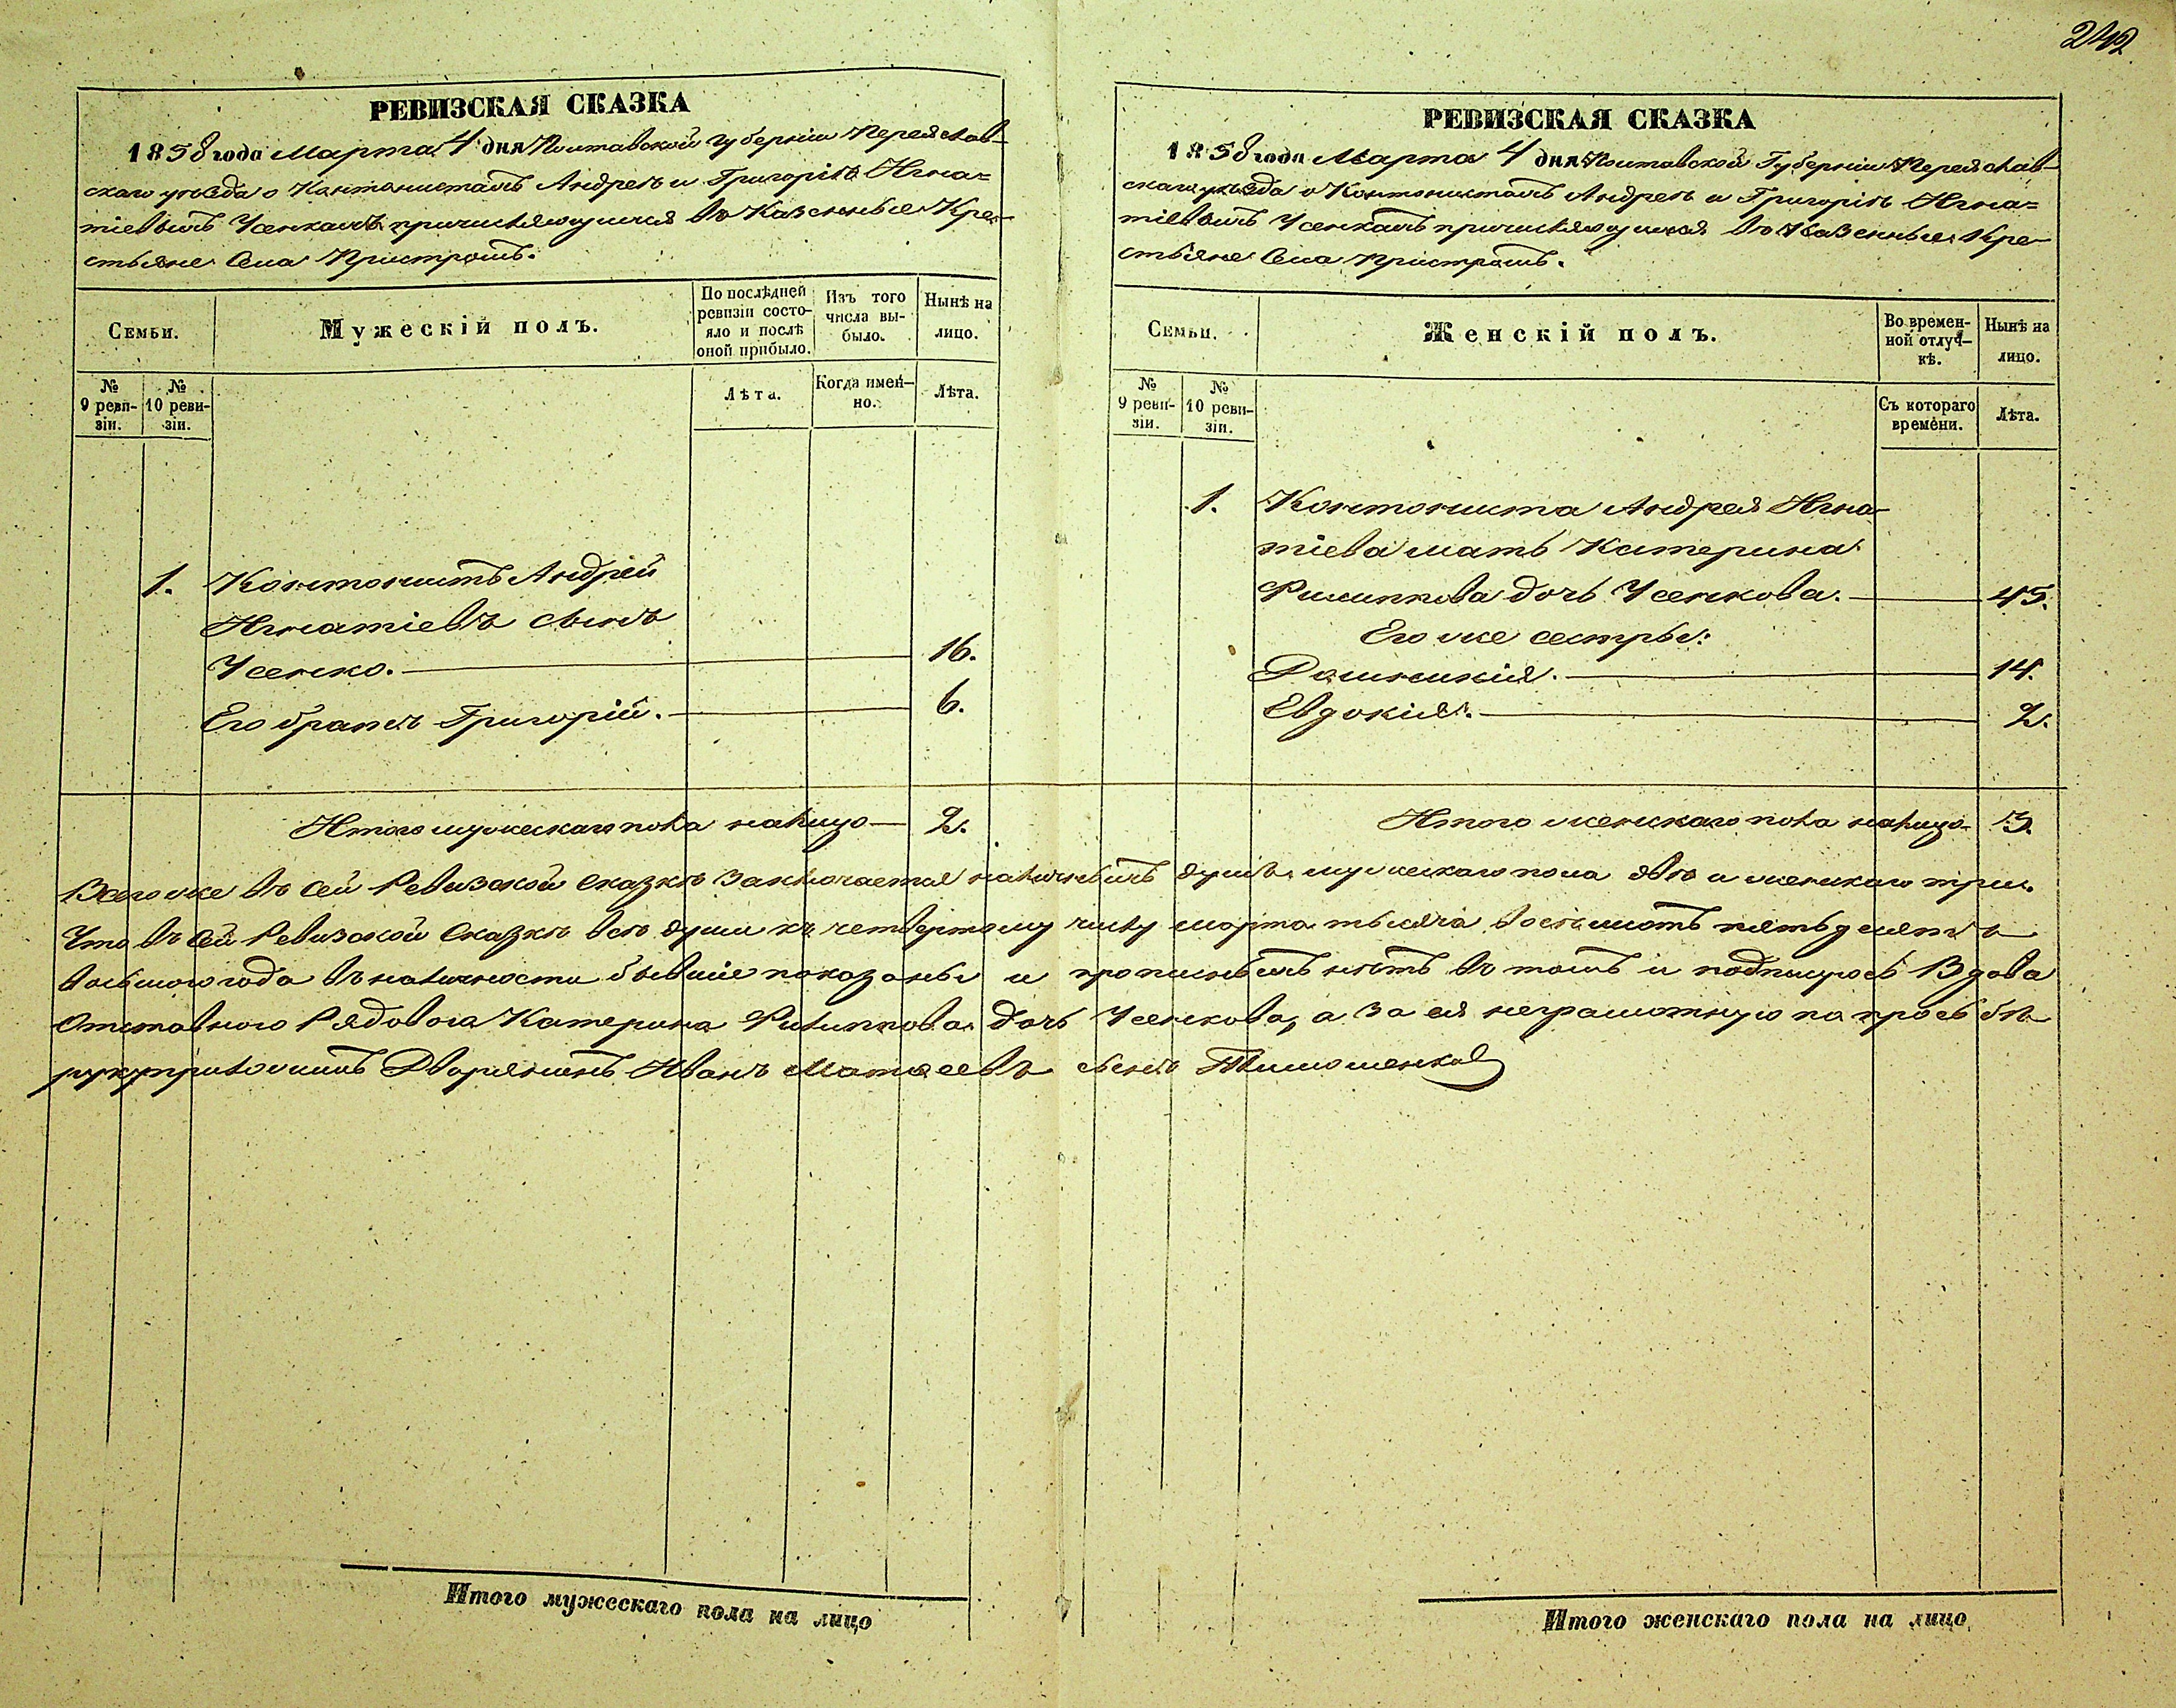 242
РЕВИЗСКАЯ СКАЗКА
1858 года Марта 4 дня Полтавской губерніи Переяслав-
скаго уѣзда о Кантонистахъ Андреѣ и Григоріѣ Игна=
тіевыхъ Усенкахъ причисляющихся въ Казенные Кре-
стьяне Села Пристромъ.
Семьи.
Мужескій полъ.
По послѣдней ревизіи состо-
яло и послѣ оной прибыло.
Изъ того числа вы-
было.
Нынѣ на лицо.
№ 9 реви-
зіи.
№ 10 реви-
зіи.
Лѣта.
Когда имен-
но.
Лѣта.
1. Контонистъ Андрѣй
Игнатіевъ сынъ
Усенко. 16.
Его братъ Григорій. 6.
Итого мужескаго пола налицо 2.
РЕВИЗСКАЯ СКАЗКА
1858 года Марта 4 дня Полтавской Губерніи Переяслав-
скаго уѣзда о Контонистахъ Андреѣ и Григоріѣ Игна=
тіевыхъ Усенкахъ причисляющихся въ Казенные Кре-
стьяне Села Пристромъ.
Семьи.
Женскій полъ.
Во времен-
ной отлуч-
кѣ.
Нынѣ на лицо.
№ 9 реви-
зіи.
№ 10 реви-
зіи.
Съ котораго времени.
Лѣта.
1. Контониста Андрея Игна-
тіева мать Катерина
Филиппова дочь Усенкова. 45.
Его же сестры:
Домникія. 14.
Евдокія. 2.
Итого женскаго пола налицо 3.
Всего же въ сей Ревизской сказкѣ заключается наличныхъ душъ мужескаго пола двѣ и женскаго три.
Что въ сей Ревизской Сказкѣ всѣ души къ четвертому числу марта тысяча восемьсотъ пятьдесятъ
восьмого года въ наличности бывшіе показаны и прописныхъ нѣтъ въ томъ и подпишуюсь Вдова
Отставного Рядового Катерина Филиппова дочь Усенкова, а за ея неграмотную по просьбѣ
руку приложилъ Дворянинъ Иванъ Матвеевъ сынъ
Итого мужескаго пола на лицо
Итого женскаго пола на лицо